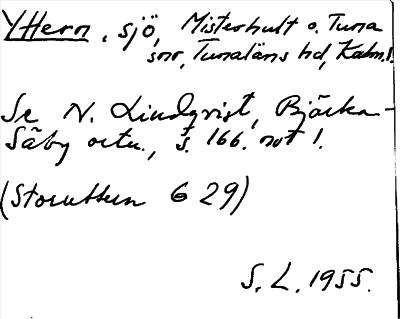 Yttern, sjö, Misterhult o. Tuna
snr, Tunaläns hd, Kalm.l.
Se N. Lindqvist, Bjärka-
Säby ortn., s. 166. not 1.
(Storuttern 6 29)
S. L. 1955.